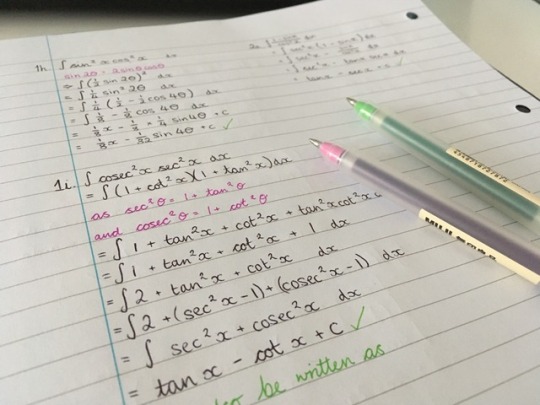 1h. ∫ sin²x cos²x dx
sin 2θ = 2sinθcosθ
= ∫ (½ sin 2θ)² dx
= ∫ ¼ sin² 2θ dx
= ∫ ¼ (½ - ½ cos 4θ) dx
= ∫ ⅛ - ⅛ cos 4θ dx
= ⅛x - ⅛ * ¼ sin 4θ + c
= ⅛x - 1/32 sin 4θ + c ✓
1i. ∫ cosec²x sec²x dx
= ∫ (1 + cot²x)(1 + tan²x) dx
as sec²θ = 1 + tan²θ
and cosec²θ = 1 + cot²θ
= ∫ 1 + tan²x + cot²x + tan²xcot²x
= ∫ 1 + tan²x + cot²x + 1 dx
= ∫ 2 + tan²x + cot²x dx
= ∫ 2 + (sec²x - 1) + (cosec²x - 1) dx
= ∫ sec²x + cosec²x dx
= tan x - cot x + c ✓
be written as